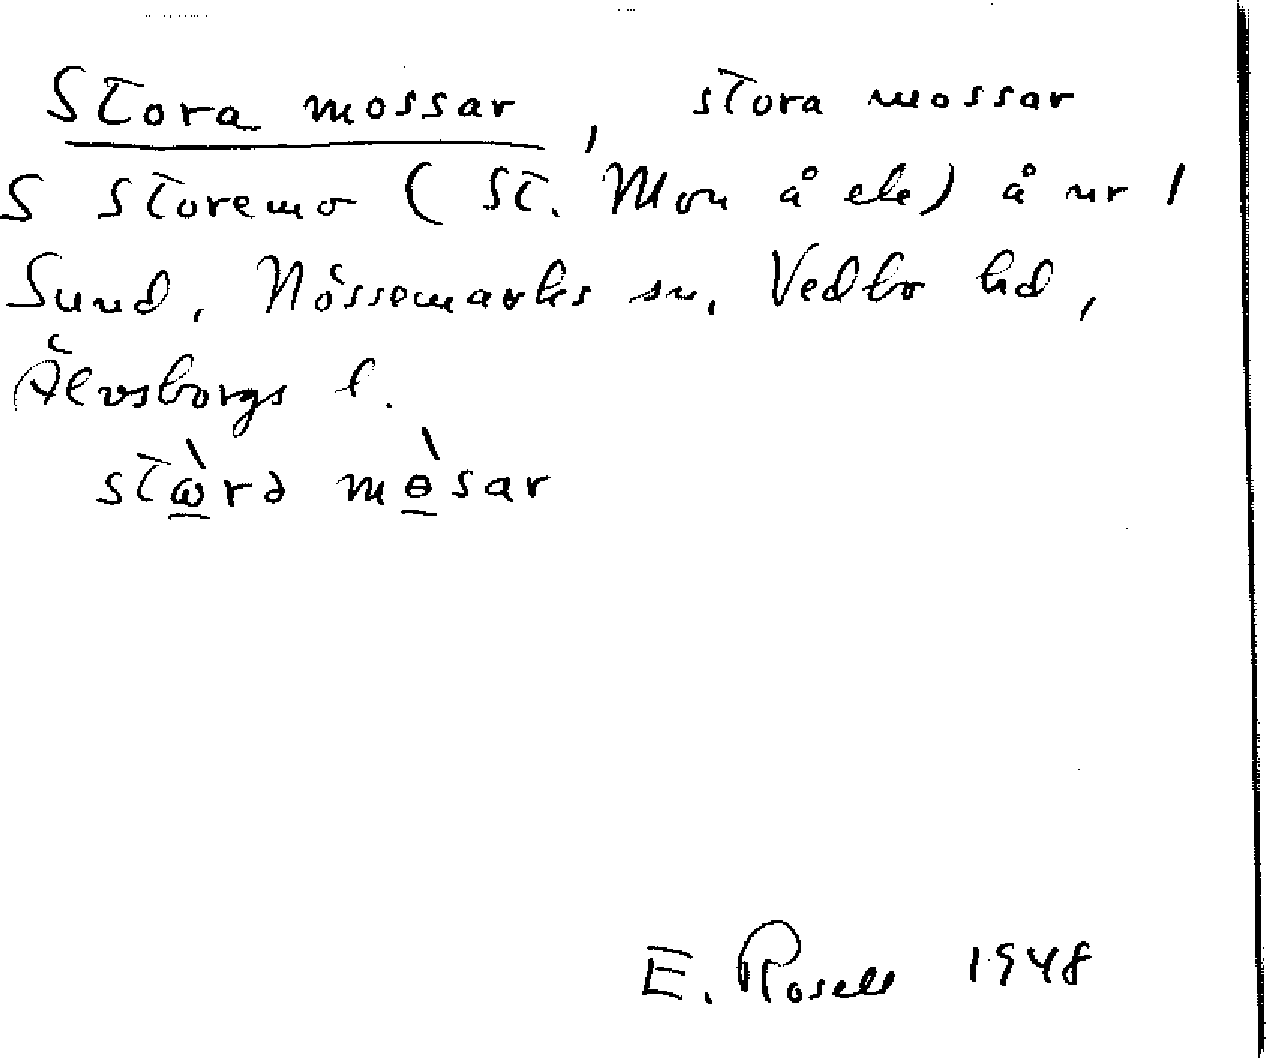 Stora mossar, stora mossar
S Storemo (St. Mon å ek) å nr 1
Sund, Nössemarks sn, Vedbo hd,
Älvsborgs l.
stὼ̲rə mɵ̲̀sar
E. Rosell 1948